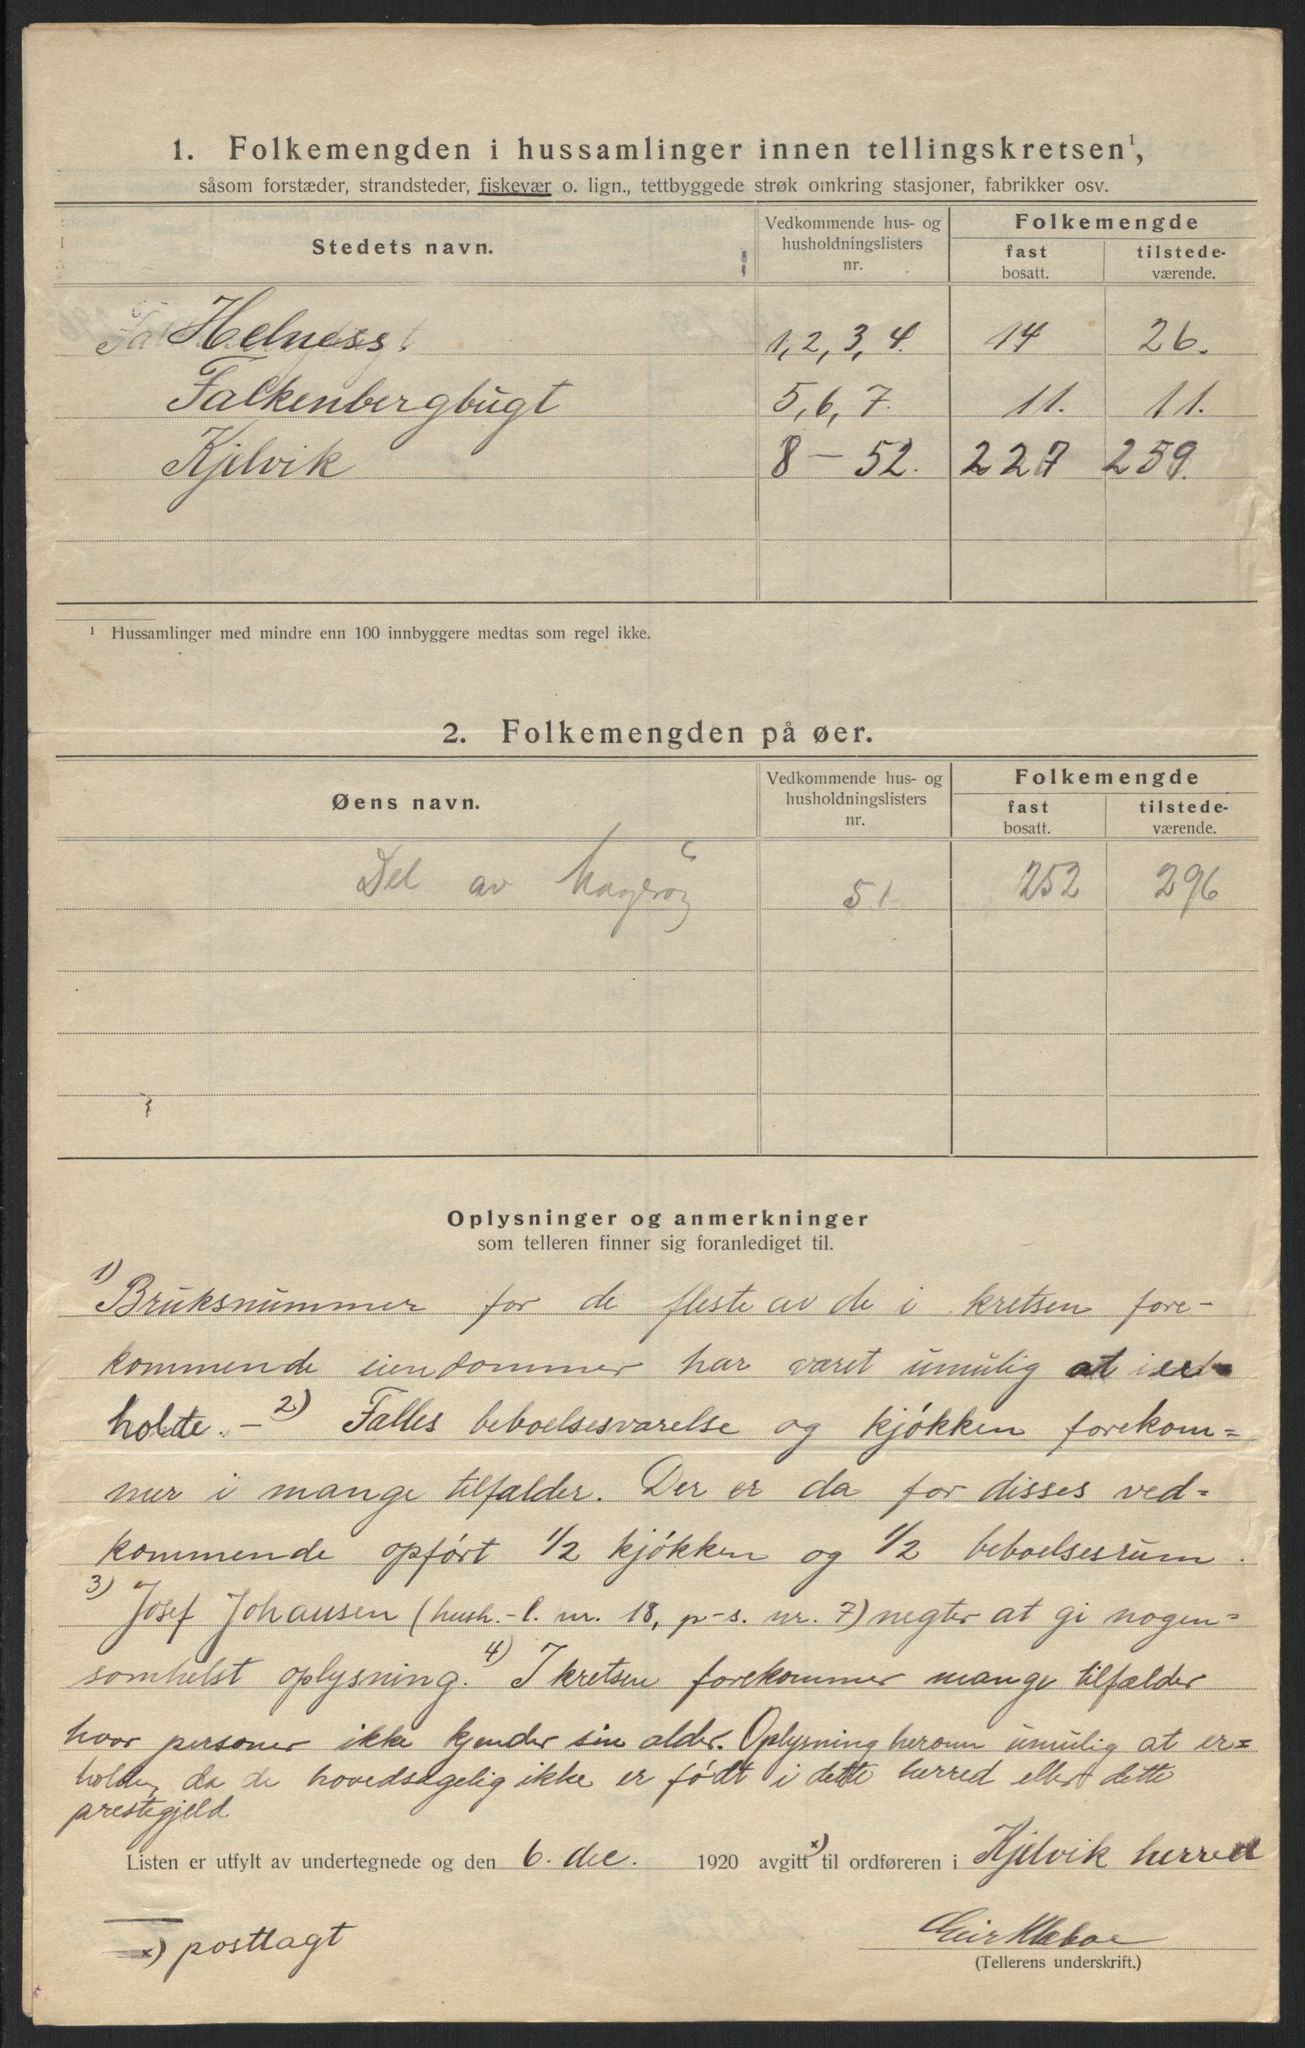 1. Folkemengden i hussamlinger innen tellingskretsen¹,
såsom forstæder, strandsteder, fiskevær o. lign., tettbyggede strøk omkring stasjoner, fabrikker osv.
Stedets navn. Vedkommende hus- og husholdningslisters nr. Folkemengde fast bosatt. tilstede-værende.
Helness 1, 2, 3, 4. 14 26.
Falkenbergbugt 5, 6, 7. 11. 11.
Kjelvik 8 – 52. 227 259.
¹ Hussamlinger med mindre enn 100 innbyggere medtas som regel ikke.
2. Folkemengden på øer.
Øens navn. Vedkommende hus- og husholdningslisters nr. Folkemengde fast bosatt. tilstede-værende.
Del av Magerøy 51 252 296
Oplysninger og anmerkninger
som telleren finner sig foranlediget til.
1) Bruksnummer for de fleste av de i kretsen fore-
kommende eiendommer har været umulig at
holde. – 2) Fælles beboelsesværelse og kjøkken forekom=
mer i mange tilfælder. Der er da for disses ved=
kommende opført 1/2 kjøkken og 1/2 beboelsesrum.
3) Josef Johansen (hush.-l. nr. 18, p-s. nr. 7) negter at gi nogen=
somhelst oplysning. 4) I kretsen forekommer mange tilfælder
hvor personer ikke kjender sin alder. Oplysning herom umulig at er=
holde, da de hovedsagelig ikke er født i dette herred eller dette
prestegjeld.
Listen er utfylt av undertegnede og den 6. dec. 1920 avgitt x) til ordføreren i Kjelvik herred
x) posttagt
Geir Klæboe
(Tellerens underskrift.)